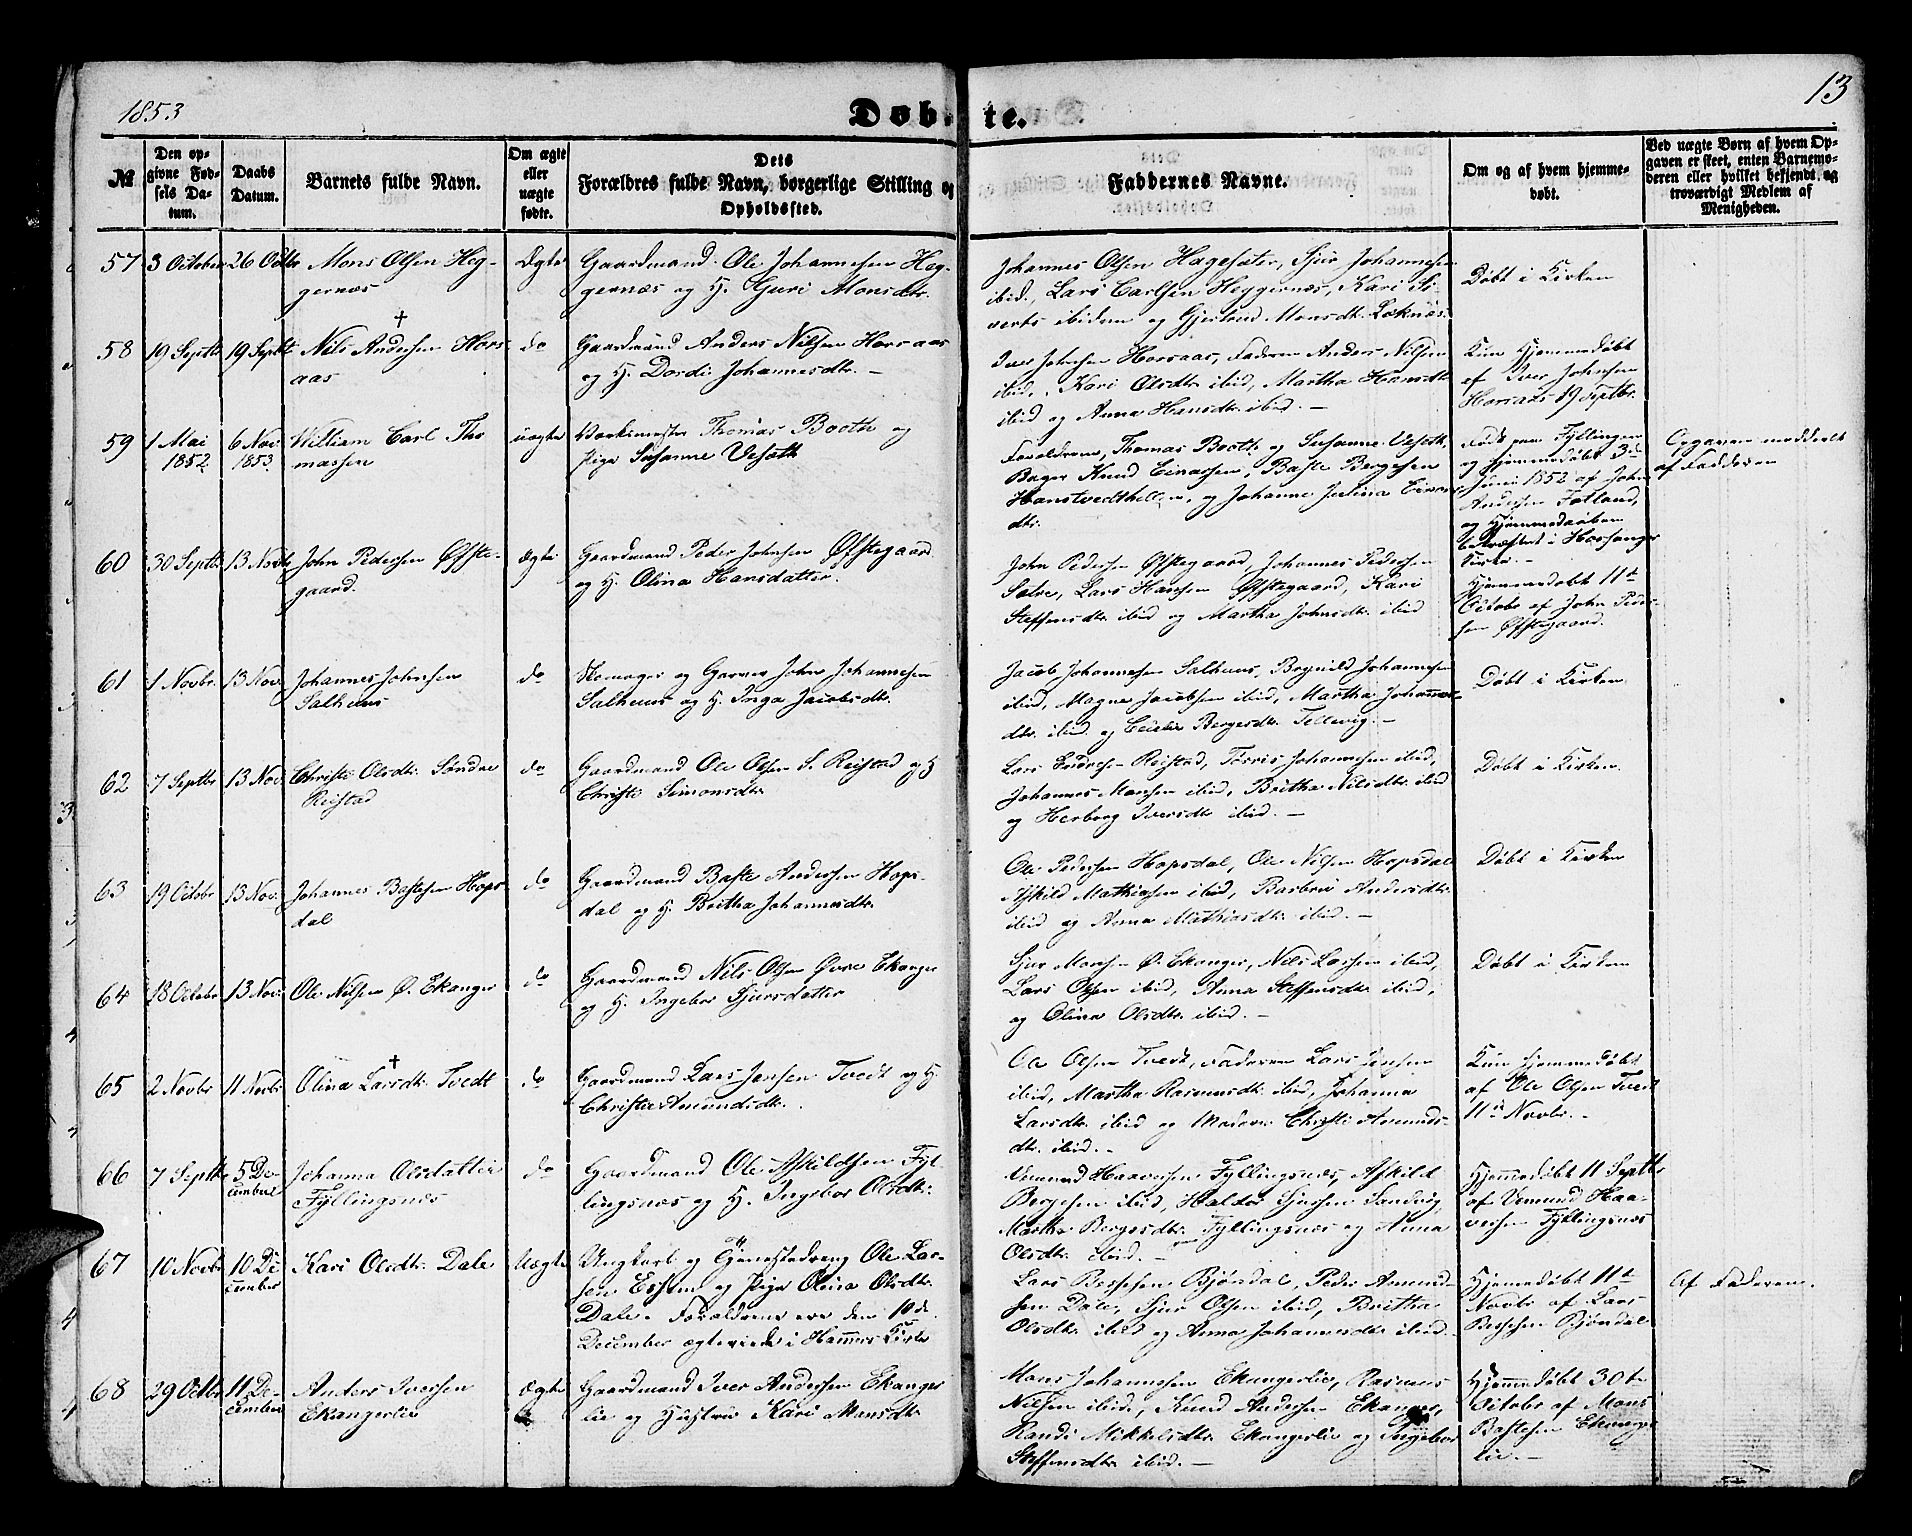 1853
Døbte.
13
№
Den op-
givne Fød-
sels Da-
tum.
Daabs
Datum.
Barnets fulde Navn.
Om ægte
eller
uægte
fødte.
Dets
Forældres fulde Navn, borgerlige Stilling og
Opholdssted.
Faddernes Navne.
Om og af hvem hjemme-
døbt.
Ved uægte Børn af hvem Op-
gaven er skeet, enten Barnemo-
deren eller hvilket bekjendt og
troværdigt Medlem af
Menigheden.
57
3 October
26 Octbr
Mons Olsen Heg-
gernæs
Ægte
Gaardmand Ole Johannesen Heg-
gernæs og H. Guri Monsdtr.
Johannes Olsen Hagesæter, Sjur Johannesen
ibid., Lars Carlsen Heggernæs, Kari Si-
verts ibidem og Gjertrud Monsdtr. Løknæs.
Døbt i Kirken
58
19 Septbr
19 Septbr
Nils Andersen Hors-
aas
†
do
Gaardmand Anders Nilsen Horsaas
og H. Dordi Johannesdtr. —
Iver Johnsen Horsaas, Faderen Anders Nilsen
ibid., Kari Olsdtr. ibid, Martha Hansdtr.
ibid og Anna Hansdtr. ibid. —
Kun Hjemmedøbt
af Iver Johnsen
Horsaas 19 Septbr.
59
1 Mai
1852
6 Nov.
1853
William Carl Tho
massen
uægte
Værksmester Thomas Booth og
Pige Susanne
Forældrene, Thomas Booth og Susanne
Bager Knud Einarsen, Baste Bergesen
Hanstvedthellen, og Johanne Julina Einars-
dtr.
Født paa Fyllingen
og hjemmedøbt 3die
Junii 1852 af John
Andersen Fotland,
og Hjemmedaaben
bekræftet i Hosanger
Kirke. —
Opgaven meddeelt
af Fadderen
60
30 Septbr
13 Novbr
John Pedersen Øfste-
gaard.
Ægte
Gaardmand Peder Johnsen Øfstegaard
og H. Olina Hansdatter.
John Pedersen Øfstegaard, Johannes Pedersen
Sætre, Lars Hansen Øfstegaard, Kari
Steffensdtr. ibid og Martha Johnsdtr. ibid
Hjemmedøbt 11te
Octobr af John Peder-
sen Øfstegaard.
61
1 Novbr.
13 Nov.
Johannes Johnsen
Salhuus
do
Skomager og Garver John Johannesen
Salhuus og H. Inga Jacobsdtr.
Jacob Johannesen Salhuus, Bognild Johannesen
ibid, Magne Jacobsen ibid, Martha Johannes-
dtr. ibid. og Bergesdtr. Tellevig. —
Døbt i Kirken
62
7 Septbr
13 Nov.
Christi Olsdtr. Søndre
Reistad
do
Gaardmand Ole Olsen S. Reistad og H
Christi Simonsdtr.
Lars Endresen Reistad, Torris Johannesen ibid,
Johannes Monsen ibid, Britha Nilsdtr. ibid
og Herborg Iversdtr. ibid. —
Døbt i Kirken.
63
19 Octobr
13 Nov.
Johannes Bastesen Hops-
dal
do
Gaardmand Baste Andersen Hops-
dal og H. Britha Johannesdtr.
Ole Pedersen Hopsdal, Ole Nilsen Hopsdal
Askild Mathiasen ibid, Barbru Andersdtr.
ibid og Anna Mathiasdtr. ibid. —
Døbt i Kirken
64
18 Octobr
13 Nov.
Ole Nilsen Ø. Ekanger
do
Gaardmand Nils Olsen Øvre Ekanger
og H. Ingebor Sjursdatter
Sjur Monsen Ø. Ekanger, Nils Larsen ibid,
Lars Olsen ibid, Anna Steffensdtr. ibid,
og Olina Olsdtr. ibid. —
Døbt i Kirken
65
2 Novbr
11 Novbr.
Olina Larsdtr. Tvedt
†
do
Gaardmand Lars Jensen Tvedt og H
Christi Amundsdtr.
Ole Olsen Tvedt, Faderen Lars Jensen
ibid, Martha Rasmusdtr. ibid, Johanna
Larsdtr. ibid og Moderen Christi Amunds-
dtr. ibid. —
Kun hjemmedøbt
af Ole Olsen Tvedt
11te Novbr. —
66
7 Septbr
5 De-
cember
Johanna Olsdatter
Fyllingsnæs
do
Gaardmand Ole Askildsen Fyl-
lingsnæs og H. Ingebor Olsdtr.
Vemund Haaversen Fyllingsnæs, Askild
Bergesen ibid, Haldor Sjursen Sandvig
Martha Bergesdtr. Fyllingsnæs og Anna
Olsdtr. ibid. —
Hjemmedøbt 11 Septbr
af Vemund Haa-
versen Fyllingsnæs
67
10 Novbr
10 De
cember
Kari Olsdtr. Dale
Uægte
Ungkarl og Tjenestedreng Ole Lar-
sen og Pige Olina Olsdtr.
Dale. Forældrene ere den 10de
December ægteviede i Hammers Kirke
Lars Bessesen Bjøndal, Peder Amund-
sen Dale, Sjur Olsen ibid, Britha
Olsdtr. ibid og Anna Johannesdtr. ibid.
Hjemmedøbt 11te
Novbr af Lars
Bessesen Bjøndal
Af Faderen.
68
29 Octbr
11 De-
cember
Anders Iversen
Ekangerlie
Ægte
Gaardmand Iver Andersen Ekanger
lie og Hustru Kari Monsdtr.
Mons Johannesen Ekangerlie, Rasmus
Nilsen ibid, Knud Andersen Ekanger,
Randi Mikkelsdtr. Ekangerlie og Ingebor
Steffensdtr ibid. —
Hjemmedøbt 30te
Octobr af Mons
Bastesen Ekanger
lie. —